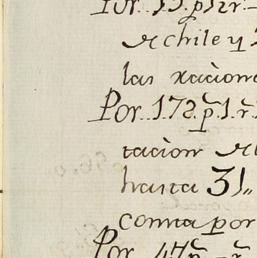 Por. 55.p.
de chile y
las racion
Por. 172.p.1.r.
tacion de
hasta 31,,
conna por
Por. 47p. r.